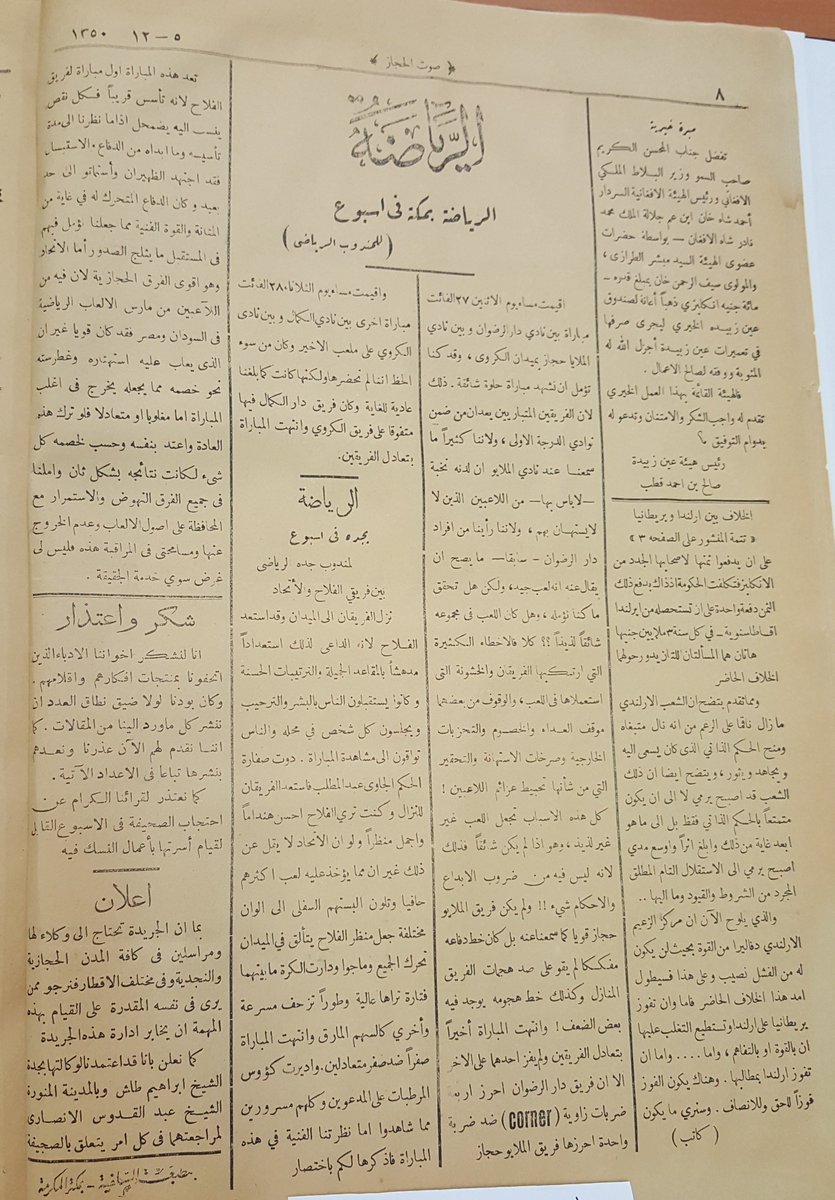 ٨
﴿ صوت الحجاز ﴾
٥ – ١٢ ١٣٥٠
مبرة خيرية
تفضل جناب المحسن الكريم
صاحب السمو وزير البلاط الملكي
الافغاني ورئيس الهيئة الافغانية السردار
أحمد شاه خان ابن عم جلالة الملك محمد
نادر شاه الافغان — بواسطة حضرات
عضوى الهيئة السيد مبشر الطرازى ،
والمولوى سيف الرحمن خان بمبلغ قدره –
مائة جنيه انكليزي ذهباً أعانة لصندوق
عين زبيده الخيري ليجرى صرفها
في تعميرات عين زبيدة أجزل الله له
المثوبة ووفقه لصالح الاعمال .
فالهيئة القائمة بهذا العمل الخيري
تقدم له واجب الشكر والامتنان وتدعو له
بدوام التوفيق ؟
رئيس هيئة عين زبيدة
صالح بن احمد قطب
الخلاف بين ارلندا وبريطانيا
« تتمة المنشور على الصفحه ٣ »
على ان يدفعوا ثمنها لاصحابها الجدد من
الانكليز فتكلفت الحكومة اذذاك بدفع ذلك
الثمن دفعة واحدة على أن تستحصله من ايرلندا
اقساطا سنوية – فى كل سنة ٣ ملايين جنيها
هاتان هما المسألتان للتان يدور حولهما
الخلاف الحاضر
ومما تقدم يتضح ان الشعب الارلندي
ما زال ناقماً على الرغم من انه نال متبغاه
ومنح الحكم الذاتي الذى كان يسعى اليه
ويجاهد ويثور ، ويتضح ايضا ان ذلك
الشعب قد اصبح يرمي لا الى ان يكون
متمتعاً بالحكم الذاتي فقط بل الى ما هو
ابعد غاية من ذلك وابلغ اثراً واوسع مدي
اصبح يرمى الى الاستقلال التام المطلق
المجرد من الشروط والقيود وما اليها ..
والذي يلوح الآن ان مركز الزعيم
الارلندي دفاليرا من القوة بحيث لن يكون
له من الفشل نصيب وعلى هذا فسيطول
امد هذا الخلاف الحاضر فاما وان تفوز
بريطانيا على ارلندا وتستطيع التغلب عليها
ان بالقوة او بالتفاهم ، واما .... واما ان
تفوز ارلندا بمطاليها . وهناك يكون الفوز
فوزاً للحق وللانصاف . وسنري ما يكون
( كاتب )
الرياضة
الرياضة بمكة فى اسبوع
( للمندوب الرياضى )
اقيمت مساء يوم الاثنين ٢٧ الفائت
مباراة بين نادي دار الرضوان وبين نادى
الملايا حجاز بميدان الكروى ، وقد كنا
نؤمل ان نشهد مباراة حلوة شائقة . ذلك
لان الفريقين المتباريين يعدان من ضمن
نوادي الدرجة الاولى ، ولاننا كثيراً ما
سمعنا عند نادي الملايو ان لدنه نخبة
–لاباس بها– من اللاعبين الذين لا
لايستهان بهم ، ولاننا رأينا من افراد
دار الرضوان – سابقا – ما يصح ان
يقال عنه انه لعب جيد ، ولكن هل تحقق
ما كنا نؤمله ، وهل كان اللعب فى مجموعه
شائقاً لذيذاً ؟؟ كلا فالاخطاء الكثيرة
التي ارتكبها الفريقان والخشونة التى
استعملاها فى اللعب ، والوقوف من بعضهما
موقف العداء والخصوم والتحزبات
الخارجية وصرخات الاستهانة والتحقير
التي من شأنها تحبيط عزائم اللاعبين !
كل هذه الاسباب تجعل اللعب غير
غير لذيذ ، وهو اذا لم يكن شائقاً فذلك
لانه ليس فيه من ضروب الابداع
والاحكام شيء !! ولم يكن فريق الملايو
حجاز قويا كما سمعنا عنه بل كان خط دفاعه
مفككا لم يقو على صد هجمات الفريق
المنازل وكذلك خط هجومه يوجد فيه
بعض الضعف ! وانتهت المباراة أخيراً
بتعادل الفريقين ولم يفز احدهما على الاخر
الا ان فريق دار الرضوان احرز اربع
ضربات زاوية ( corner ) ضد ضربة
واحدة احرزها فريق الملايو حجاز
واقيمت مساء يوم الثلاثاء ٢٨ الفائت
مباراة اخرى بين نادي الكمال وبين نادى
الكروي على ملعب الاخير وكان من سوء
الحظ اننا لم نحضرها ولكنها كانت كما بلغنا
عادية للغاية وكان فريق دار الكمال فيها
متفوقا على فريق الكروي وانتهت المباراة
بتعادل الفريقين .
الرياضة
بجده فى اسبوع
لمندوب جده الرياضى
بين فريقي الفلاح والأتحاد
نزل الفريقان الى الميدان وقد استعد
الفلاح لانه الداعى لذلك استعداداً
مدهشاً بالمقاعد الجميلة والترتيبات الحسنة
وكانوا يستقبلون الناس بالبشر والترحيب
ويجلسون كل شخص في محله والناس
تواقون الى مشاهدة المباراة . دوت صفارة
الحكم الجاوى عبد المطلب فاستعد الفريقان
للنزال وكنت تري الفلاح احسن هنداماً
واجمل منظراً ولو ان الاتحاد لا يقل عن
ذلك غير ان مما يؤخذ عليه لعب اكثرهم
حافيا وتلون البستهم السفلى الى الوان
مختلفة جعل منظر الفلاح يتألق في الميدان
تحرك الجميع وماجوا ودارت الكرة ما بينهما
فتارة تراها عالية وطوراً تزحف مسرعة
وأخري كالسهم المارق وانتهت المباراة
صفراً ضد صفر متعادلين . واديرت كؤوس
المرطبات على المدعوين وكلهم مسرورين
مما شاهدوا اما نظرتنا الفنية في هذه
المباراة فاذكرها لكم باختصار
تعد هذه المباراة اول مباراة لفريق
الفلاح لانه تأسس قريباً فكل نقص
ينسب اليه يضمحل اذا ما نظرنا الى مدة
تأسيسه وما ابداه من الدفاع . الاستبسال
فقد اجتهد الظهيران وأستماتو الى حد
بعيد وكان الدفاع المتحرك له في غاية من
المتانة والقوة الفنية مما جعلنا نؤمل فيهم
فى المستقبل ما يثلج الصدور أما الأتحاد
وهو اقوى الفرق الحجازية لان فيه من
اللآعبين من مارس الالعاب الرياضية
فى السودان ومصر فقد كان قويا غير ان
الذى يعاب عليه استهتاره وغطرسته
نحو خصمه مما يجعله يخرج فى اغلب
المباراة اما مغلوبا او متعادلا فلو ترك هذه
العادة واعتد بنفسه وحسب لخصمه كل
شىء لكانت نتائجه بشكل ثان واملنا
فى جميع الفرق النهوض والاستمرار مع
المحافظة على اصول الالعاب وعدم الخروج
عنها وسامحتى فى المراقبة هذه فليس لى
غرض سوي خدمة الحقيقة .
شكر واعتذار
انا لنشكر اخواننا الادباء الذين
اتحفونا بمنتجات افكارهم واقلامهم .
وكان بودنا لولا ضيق نطاق العدد ان
ننشر كل ماورد الينا من المقالات . كما
اننا نقدم لهم الآن عذرنا ونعدهم
بنشرها تباعا فى الاعداد الآتية .
كما نعتذر لقرائنا الكرام عن
احتجاب الصحيفة فى الاسبوع التالى
لقيام أسرتها بأعمال النسك فيه
اعلان
بما ان الجريدة تحتاج الى وكلاء لها
ومراسلين فى كافة المدن الحجازية
والنجدية وفى مختلف الاقطار فنرجو ممن
يرى فى نفسه المقدرة على القيام بهذه
المهمة ان يخابر ادارة هذه الجريدة
كما نعلن بانا قد اعتمدنا لوكالتها بجدة
الشيخ ابراهيم طاش وبالمدينة المنورة
الشيخ عبد القدوس الانصارى
لمراجعتهما فى كل امر يتعلق بالصحيفة
بمكة المكرمة